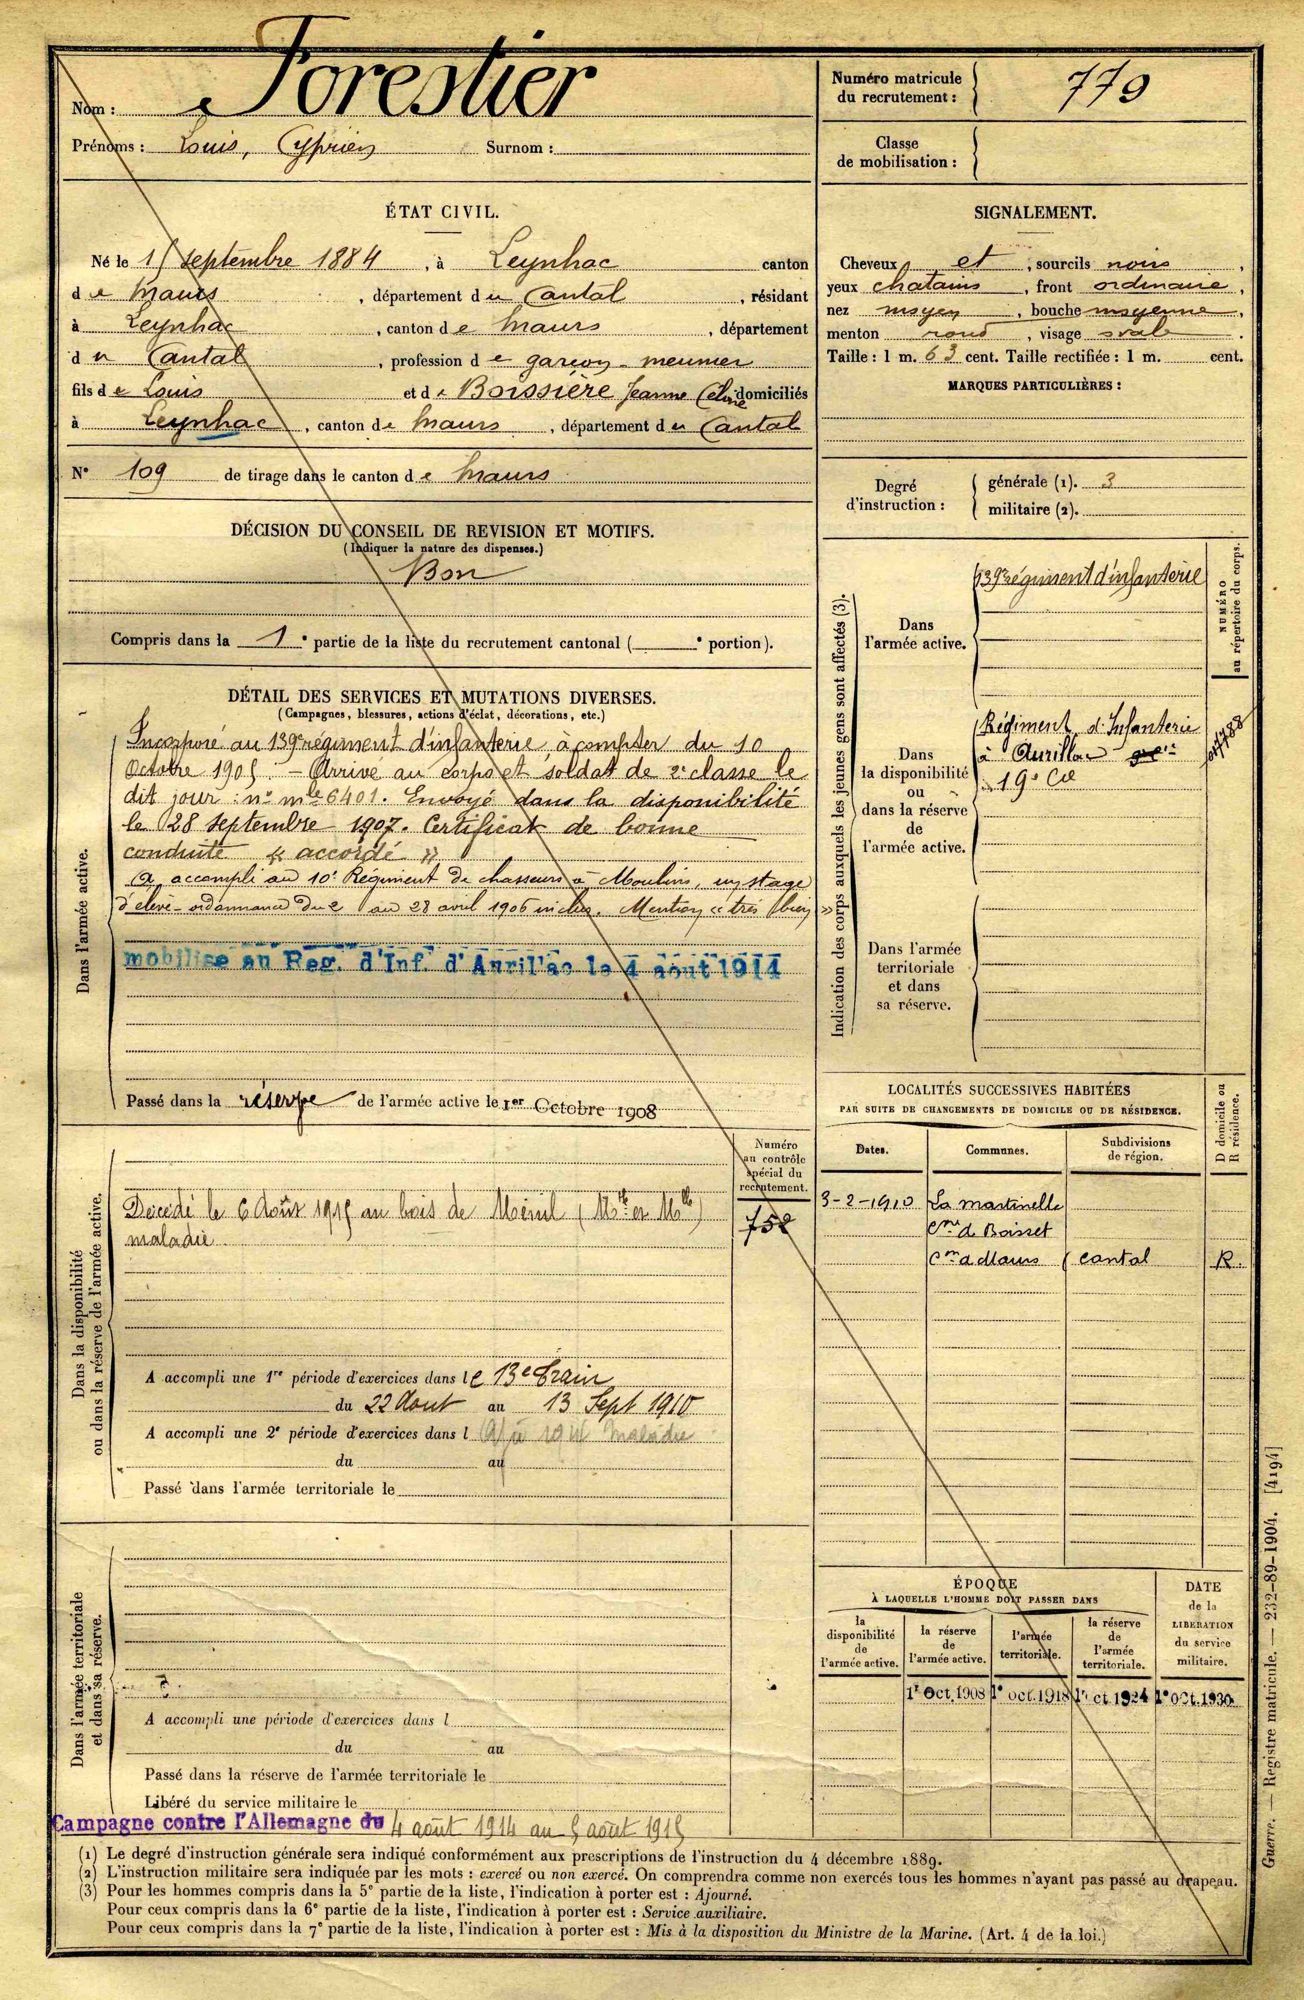 Nom : Forestier
Prénoms : Louis, Cyprien Surnom :
Numéro matricule du recrutement : 779
Classe de mobilisation :
ÉTAT CIVIL.
Né le 15 septembre 1884, à Leynhac canton
de Maurs, département du Cantal, résidant
à Leynhac, canton de Maurs, département
du Cantal, profession de garçon-meunier
fils de Louis et de Boissière Jeanne Céline domiciliés
à Leynhac, canton de Maurs, département du Cantal
N° 109 de tirage dans le canton de Maurs
SIGNALEMENT.
Cheveux et, sourcils noirs,
yeux chatains, front ordinaire,
nez moyen, bouche moyenne,
menton rond, visage ovale.
Taille : 1 m. 63 cent. Taille rectifiée : 1 m. cent.
MARQUES PARTICULIÈRES :
Degré d'instruction :
générale (1). 3
militaire (2).
DÉCISION DU CONSEIL DE REVISION ET MOTIFS.
(Indiquer la nature des dispenses.)
Bon
Compris dans la 1e partie de la liste du recrutement cantonal ( e portion).
DÉTAIL DES SERVICES ET MUTATIONS DIVERSES.
(Campagnes, blessures, actions d'éclat, décorations, etc.)
Dans l'armée active.
Incorporé au 139e régiment d'infanterie, à compter du 10
Octobre 1905. - Arrivé au corps et soldat de 2e classe le
dit jour : no mle 6401. Envoyé dans la disponibilité
le 28 septembre 1907. Certificat de bonne
conduite « accordé »
A accompli au 10e Régiment de chasseurs à Moulins, un stage
d'élève-ordonnance du 2 au 28 avril 1906 inclus. Mention « très bien »
mobilisé au Reg. d'Inf. d'Aurillac le 4 août 1914
Passé dans la réserve de l'armée active le 1er Octobre 1908
Indication des corps auxquels les jeunes gens sont affectés (3).
NUMÉRO au répertoire du corps.
Dans l'armée active.
139e régiment d'infanterie
Dans la disponibilité ou dans la réserve de l'armée active.
Régiment d'Infanterie
à Aurillac
19e Cie
Dans l'armée territoriale et dans sa réserve.
LOCALITÉS SUCCESSIVES HABITÉES
PAR SUITE DE CHANGEMENTS DE DOMICILE OU DE RÉSIDENCE.
Dates. Communes. Subdivisions de région. D domicile ou R résidence.
3-2-1910 La martinelle
Cne de Boisset
Con de Maurs Cantal R.
Dans la disponibilité ou dans la réserve de l'armée active.
Numéro au contrôle spécial du recrutement.
752
Décédé le 6 Août 1915 au bois de Mesnil (Mthe et Mlle)
maladie.
A accompli une 1re période d'exercices dans le 13e Train
du 22 Aout au 13 Sept 1910
A accompli une 2e période d'exercices dans l maladie
du au
Passé dans l'armée territoriale le
Dans l'armée territoriale et dans sa réserve.
A accompli une période d'exercices dans l
du au
Passé dans la réserve de l'armée territoriale le
Libéré du service militaire le
Campagne contre l'Allemagne du 4 août 1914 au 5 août 1915
ÉPOQUE
À LAQUELLE L'HOMME DOIT PASSER DANS
la disponibilité de l'armée active.
la réserve de l'armée active.
l'armée territoriale.
la réserve de l'armée territoriale.
DATE de la LIBÉRATION du service militaire.
1r Oct. 1908 1e oct. 1918 1r oct. 1924 1e oct. 1930
(1) Le degré d'instruction générale sera indiqué conformément aux prescriptions de l'instruction du 4 décembre 1889.
(2) L'instruction militaire sera indiquée par les mots : exercé ou non exercé. On comprendra comme non exercés tous les hommes n'ayant pas passé au drapeau.
(3) Pour les hommes compris dans la 5e partie de la liste, l'indication à porter est : Ajourné.
Pour ceux compris dans la 6e partie de la liste, l'indication à porter est : Service auxiliaire.
Pour ceux compris dans la 7e partie de la liste, l'indication à porter est : Mis à la disposition du Ministre de la Marine. (Art. 4 de la loi.)
Guerre. — Registre matricule. — 232-89-1904. [4194]